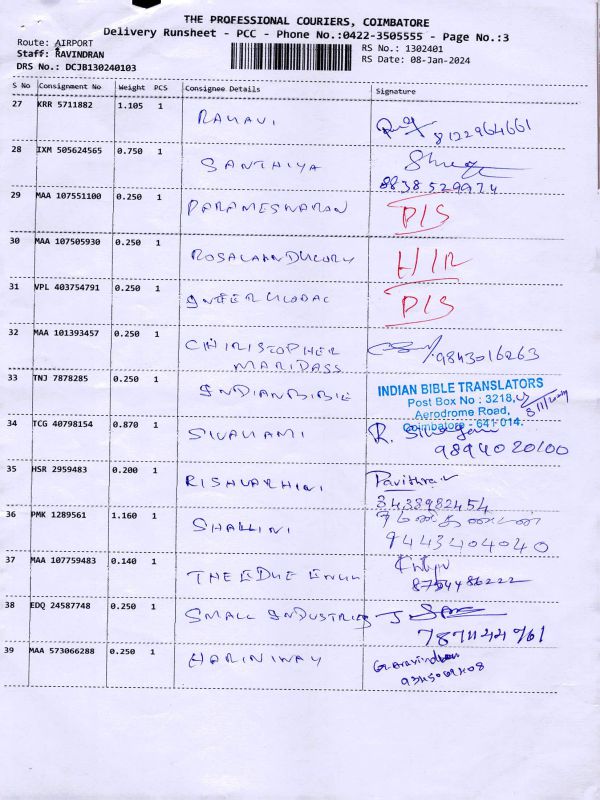 THE PROFESSIONAL COURIERS, COIMBATORE
Delivery Runsheet - PCC - Phone No.:0422-3505555 - Page No.:3
Route: AIRPORT
RS No.: 1302401
Staff: RAVINDRAN
RS Date: 08-Jan-2024
DRS No.: DCJB130240103
S No Consignment No Weight PCS Consignee Details Signature
27 KRR 5711882 1.105 1 RAMAVI 8122964661
28 IXM 505624565 0.750 1 SANTHIYA
8838529974
29 MAA 107551100 0.250 1 PARAMESWARAN D/S
30 MAA 107505930 0.250 1 H/R
31 VPL 403754791 0.250 1 D/S
32 MAA 101393457 0.250 1 CHIRISTOPHER 9843016263
MARIDASS
33 TNJ 7878285 0.250 1 INDIANBIBLE
INDIAN BIBLE TRANSLATORS
Post Box No : 3218,
Aerodrome Road,
Coimbatore - 641 014.
8/1/2024
34 TCG 40798154 0.870 1 SIVAHAMI
9894020100
35 HSR 2959483 0.200 1 RISHVARHINI Pavithra
3438982454
36 PMK 1289561 1.160 1 SHALLINI
9443404040
37 MAA 107759483 0.140 1 THE EDGE
8754486222
38 EDQ 24587748 0.250 1 SMALL INDUSTRIES J
39 MAA 573066288 0.250 1 HARINIWAY G.Aravindhan